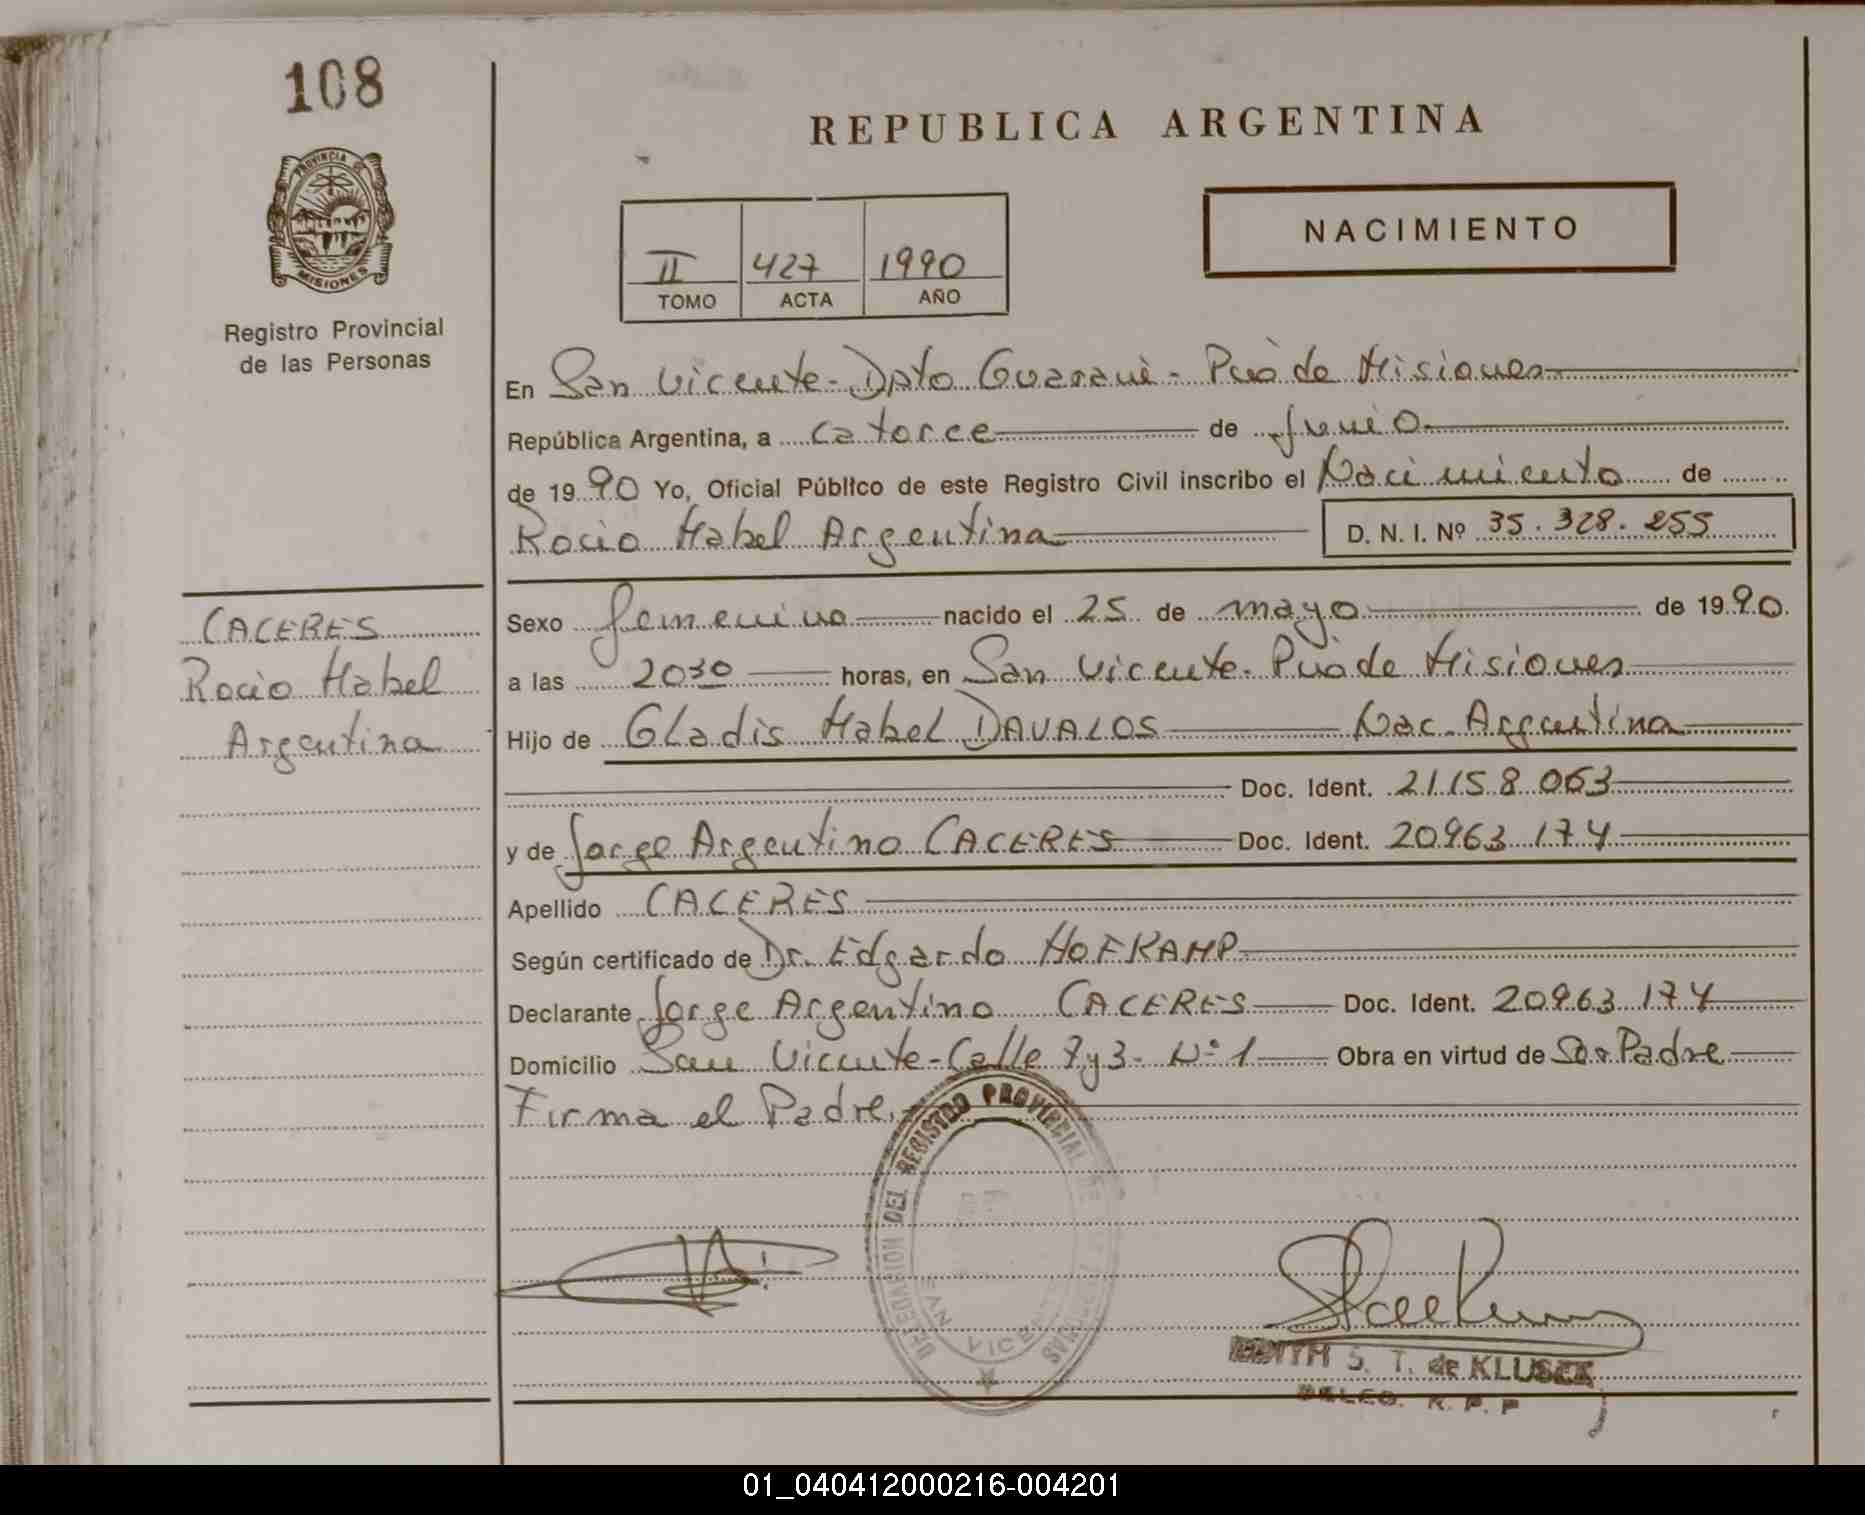 108
PROVINCIA DE
MISIONES
Registro Provincial
de las Personas
REPUBLICA ARGENTINA
NACIMIENTO
II 427 1990
TOMO ACTA AÑO
En San Vicente - Dpto Guaraní - Pcia de Misiones
República Argentina, a catorce de junio
de 1990 Yo, Oficial Público de este Registro Civil inscribo el Nacimiento de
Rocio Mabel Argentina D. N. I. Nº 35.328.255
CACERES
Rocio Mabel
Argentina
Sexo femenino nacido el 25 de mayo de 1990.
a las 2030 horas, en San Vicente - Pcia de Misiones
Hijo de Gladis Mabel DAVALOS Nac. Argentina
Doc. Ident. 21158.063
y de Jorge Argentino CACERES Doc. Ident. 20963.174
Apellido CACERES
Según certificado de Dr. Edgardo HOFKAMP
Declarante Jorge Argentino CACERES Doc. Ident. 20963.174
Domicilio San Vicente - Calle 7 y 3 - Nº 1 Obra en virtud de Ser Padre
Firma el Padre.
DELEGACION DEL REGISTRO PROVINCIAL DE LAS PERSONAS
SAN VICENTE
S. T. de KLUSEK
DELEG. R. P. P
01_040412000216-004201